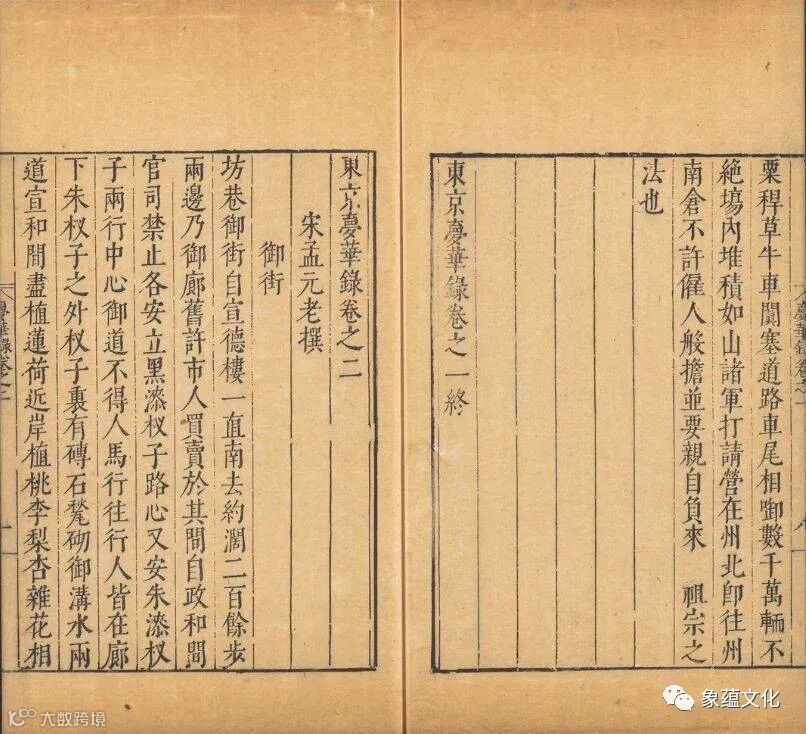 粟稈草牛車闐塞道路車尾相啣數千萬輛不
絶塲內堆積如山諸軍打請營在州北卽往州
南倉不許僱人般擔並要親自負來　祖宗之
法也
東京夢華錄卷之一終
東京夢華錄卷之二
宋孟元老撰
御街
坊巷御街自宣德樓一直南去約濶二百餘步
兩邊乃御廊舊許市人買賣於其間自政和間
官司禁止各安立黑漆杈子路心又安朱漆杈
子兩行中心御道不得人馬行往行人皆在廊
下朱杈子之外杈子裏有磚石甃砌御溝水兩
道宣和間盡植蓮荷近岸植桃李梨杏雜花相
象蕴文化
大数跨境